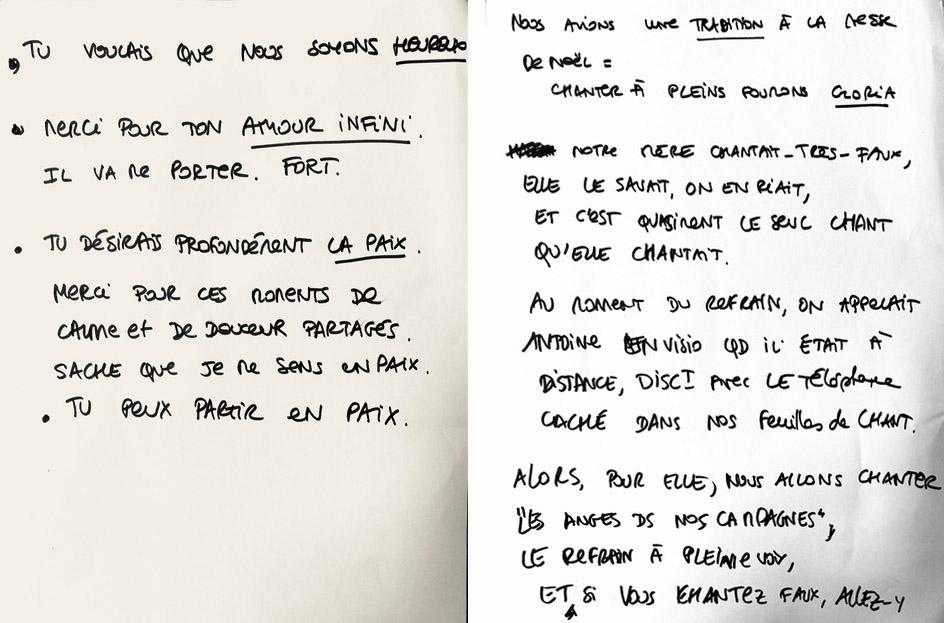 • TU VOULAIS QUE NOUS SOYONS HEUREUX
• MERCI POUR TON AMOUR INFINI.
IL VA ME PORTER. FORT.
• TU DÉSIRAIS PROFONDÉMENT LA PAIX.
MERCI POUR CES MOMENTS DE
CALME et DE DOUCEUR PARTAGÉS.
SACHE QUE JE ME SENS EN PAIX.
• TU PEUX PARTIR EN PAIX.
NOUS AVIONS UNE TRADITION À LA MESSE
DE NOËL :
CHANTER À PLEINS POUMONS GLORIA
NOTRE MÈRE CHANTAIT-TRES-FAUX,
ELLE LE SAVAIT, ON EN RIAIT,
ET C'EST QUASIMENT LE SEUL CHANT
QU'ELLE CHANTAIT.
AU MOMENT DU REFRAIN, ON APPELAIT
ANTOINE EN VISIO QD IL ÉTAIT À
DISTANCE, avec LE Téléphone
CACHÉ DANS NOS feuilles de CHANT.
ALORS, POUR ELLE, NOUS ALLONS CHANTER
"LES ANGES DS NOS CAMPAGNES",
LE REFRAIN À PLEINE VOIX,
ET SI VOUS CHANTEZ FAUX, ALLEZ-Y